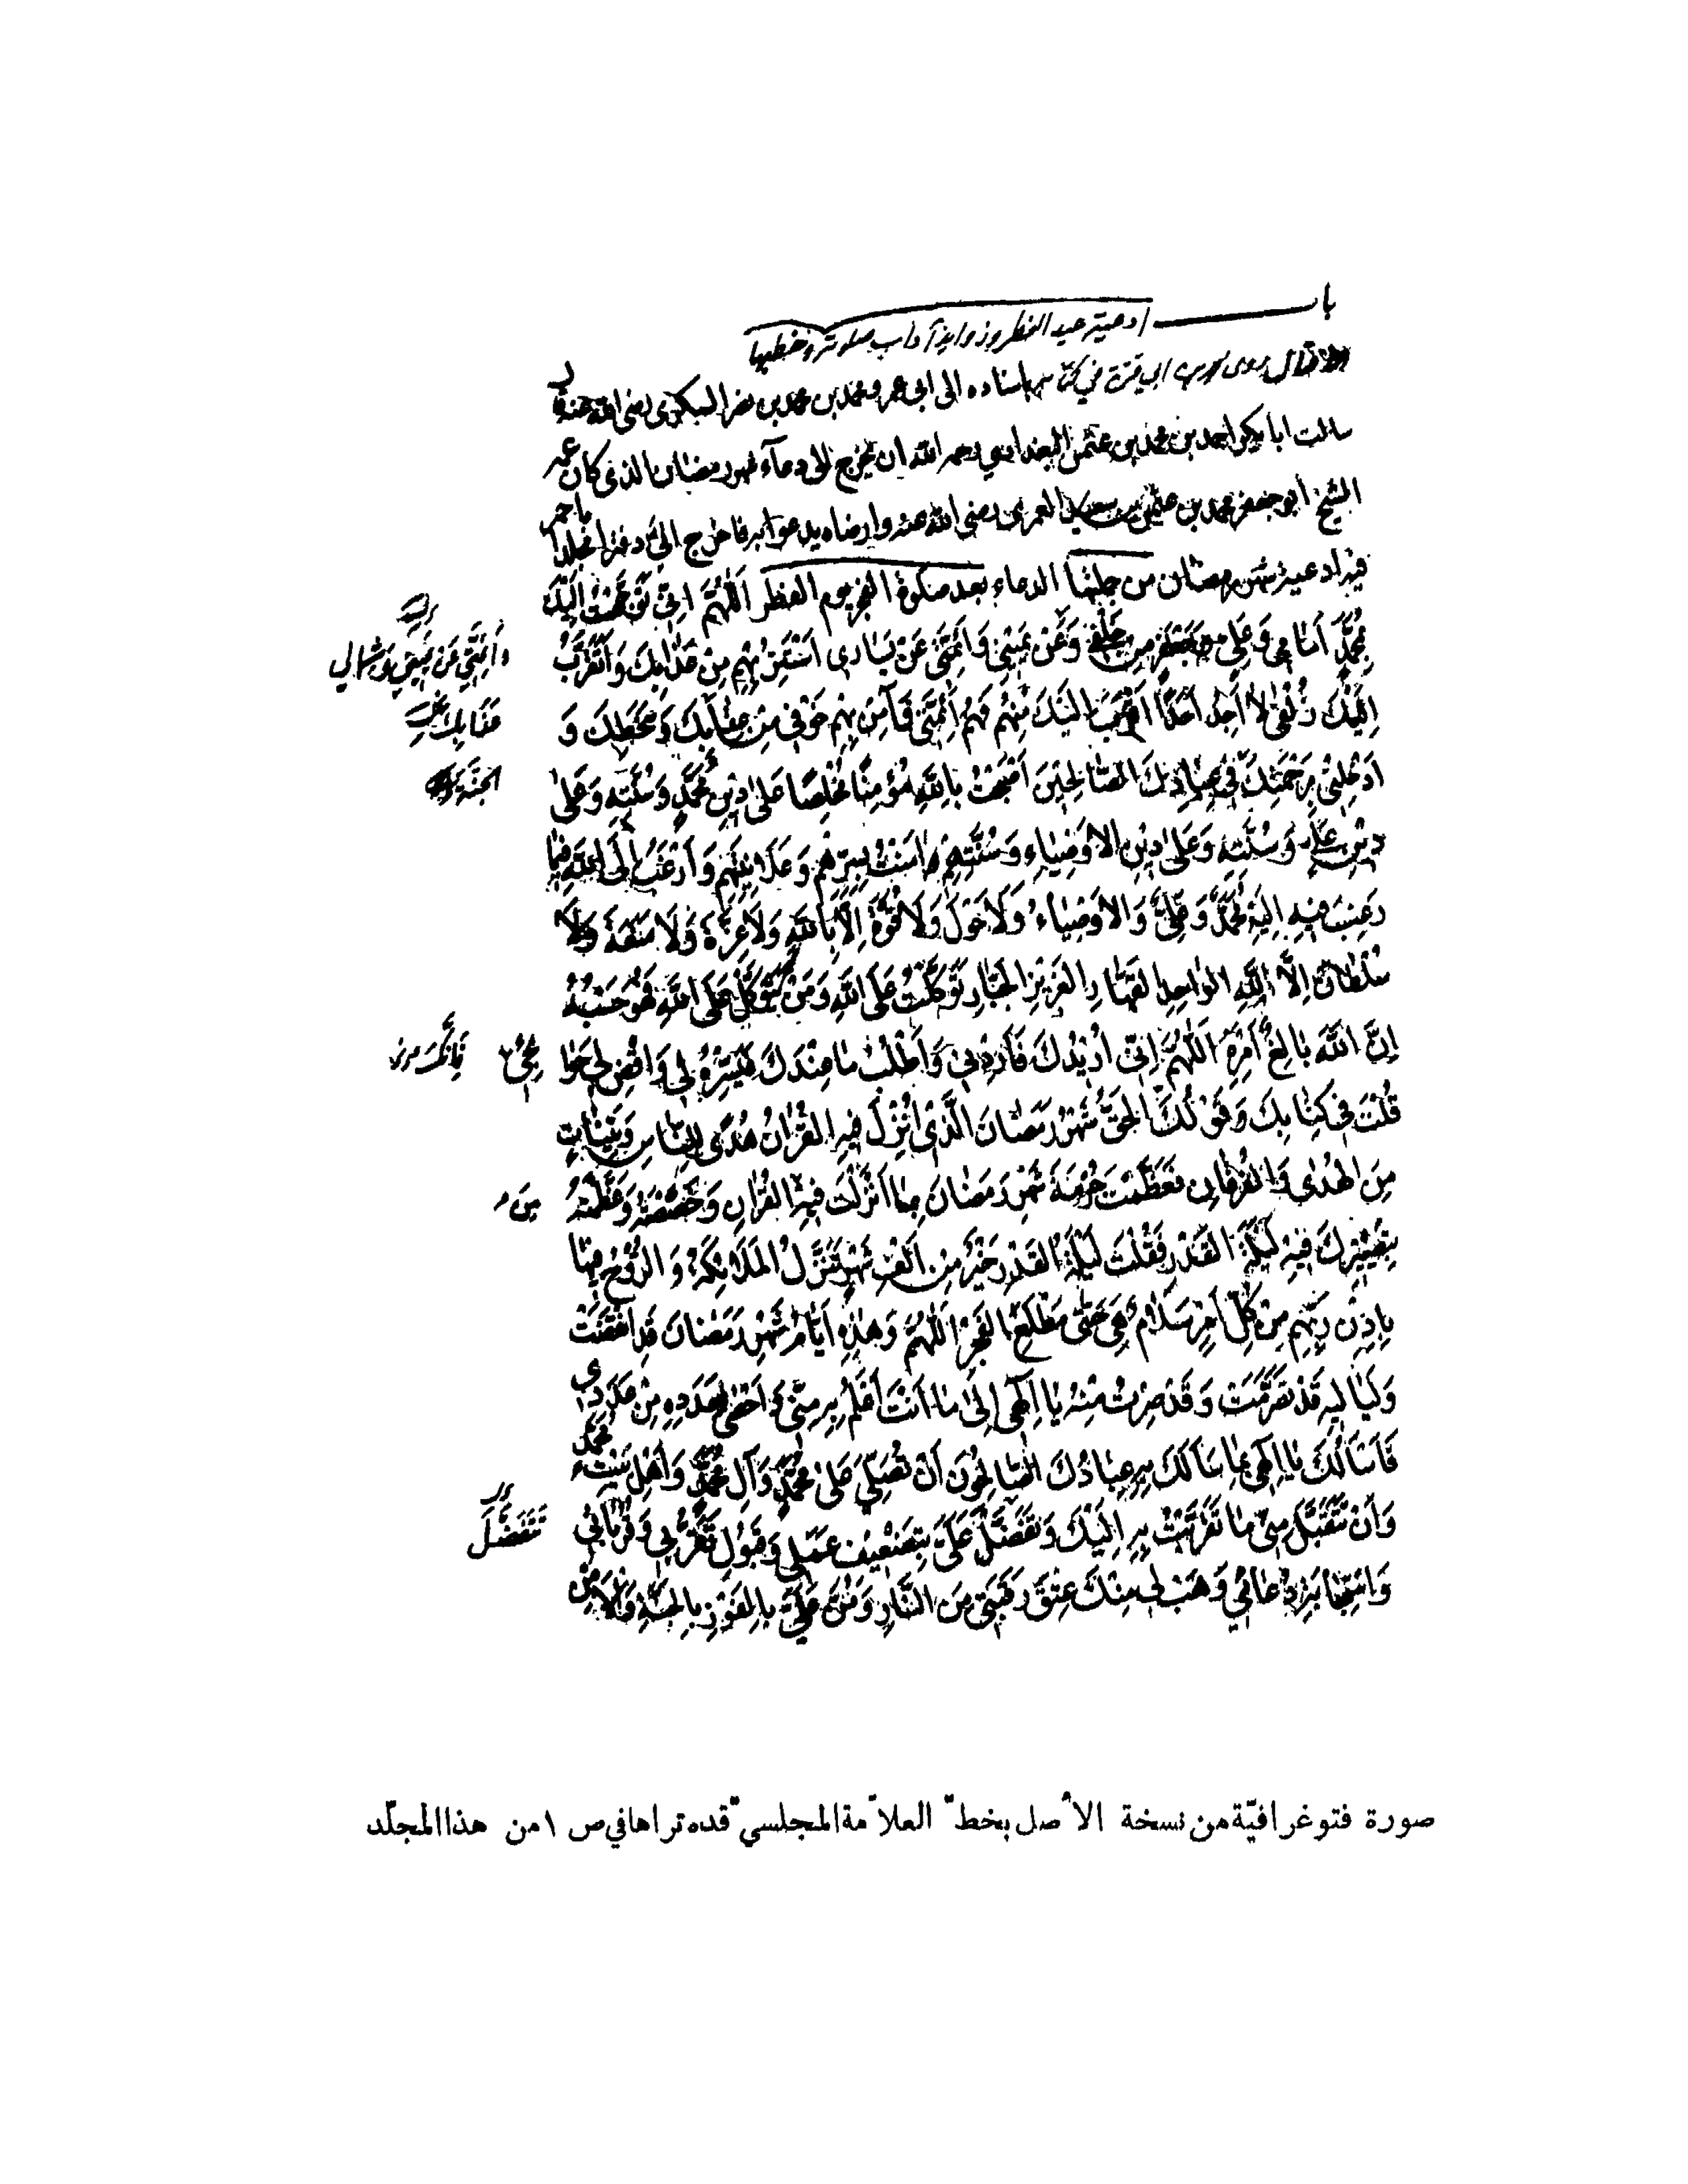 باب
ادعية عيد الفطر وزوايد آداب صلوته وخطبها
الاقبال روى ابن ابي قرة في كتابه باسناده الى ابي عمرو محمد بن محمد بن نصر السكوني رضي الله عنه قال
سالت ابا بكر احمد بن محمد بن عثمن البغدادي رحمه الله ان يخرج الى دعآء شهر رمضان الذي كان عمه
الشيخ ابو جعفر محمد بن عثمن بن سعيد العمرى رضى الله عنه وارضاه يدعوا به فاخرج الىّ دفترا مجلدا باحمر
فيه ادعية شهر رمضان من جملتها الدعاء بعد صلوة الفجر يوم الفطر اَللّهُمَّ اِنّى تَوَجَّهْتُ اِلَيْكَ
بِمُحَمَّدٍ اَمَامِى وَعَلِىٍّ مِنْ خَلْفِى وَعَنْ يَمِيْنِى وَاَئِمَّتِى عَنْ يَسَارِى اَسْتَتِرُ بِهِمْ مِنْ عَذَابِكَ وَاَتَقَرَّبُ
وَاَئِمَّتِي عَن يَمِيني وَشمالي
اِلَيْكَ زُلْفٰى لاَ اَجِدُ اَحَدًا اَقْرَبَ اِلَيْكَ مِنْهُمْ فَهُمْ اَئِمَّتِى فَآمِن بِهِمْ خَوْفِى مِنْ عِقَابِكَ وَسَخَطِكَ وَ
عَذَابِكَ
اَدْخِلْنِى بِرَحْمَتِكَ فِى عِبَادِكَ الصَّالِحِيْنَ اَصْبَحْتُ بِاللّهِ مُؤْمِنًا مُخْلِصًا عَلى دِيْنِ مُحَمَّدٍ وَسُنَّتِهِ وَعَلى
الجنّة
دِيْنِ عَلِىٍّ وَسُنَّتِهِ وَعَلى دِيْنِ الاَوْصِيَاءِ وَسُنَّتِهِمْ اٰمَنْتُ بِسِرِّهِمْ وَعَلاَنِيَتِهِمْ وَاَرْغَبُ اِلَى اللهِ فِيْمَا
رَغِبَ فِيهِ اِلَيْهِ مُحَمَّدٌ وَعَلِىٌّ وَالاَوْصِيَاءُ وَلاَ حَوْلَ وَلاَ قُوَّةَ اِلاَّ بِاللّهِ وَلاَ عِزَّةَ وَلاَ مَنَعَةَ وَلاَ
سُلْطَانَ اِلاَّ اللّهِ الوَاحِدِ القَهَّارِ العَزِيْزِ الجَبَّارِ تَوَكَّلْتُ عَلَى اللهِ وَمَنْ يَتَوَكَّلْ عَلَى اللهِ فَهُوَ حَسْبُهُ
اِنَّ اللهَ بَالِغُ اَمْرِهِ اَللّهُمَّ اِنِّى اُرِيْدُكَ فَاَرِدْنِى وَاَطْلُبُ مَا عِنْدَكَ فَيَسِّرْهُ لِى وَاقْضِ لِى حَوَا
ئِجِى فَاِنَّكَ
قُلْتَ فِى كِتَابِكَ وَقَوْلُكَ الحَقُّ شَهْرُ رَمَضَانَ الَّذِى اُنْزِلَ فِيهِ القُرْاٰنُ هُدًى لِلنَّاسِ وَبَيِّنَاتٍ
مِنَ الْهُدٰى وَالفُرقَانِ فَعَظَّمْتَ حُرْمَةَ شَهْرِ رَمَضَانَ بِمَا اَنْزَلْتَ فِيهِ القُرْاٰنِ وَخَصَصْتَهُ وَعَظَّمْتَهُ
مِنَ
بِتَصْيِيرِكَ فِيْهِ لَيْلَةَ القَدْرِ فَقُلْتَ لَيْلَةُ القَدْرِ خَيْرٌ مِنْ اَلْفِ شَهْرٍ تَنَزَّلُ المَلاَئِكَةُ وَالرُّوْحُ فِيْهَا
بِاِذِنِ رَبِّهِمْ مِنْ كُلِّ اَمْرٍ سَلاَمٌ هِىَ حَتّٰى مَطْلَعِ الفَجْرِ اَللّهُمَّ وَهٰذِهِ اَيَّامُ شَهْرِ رَمَضَانَ قَدِ انْقَضَتْ
وَلَيَالِيهِ قَدْ تَصَرَّمَتْ وَقَدْ صِرْتُ مِنْهُ يَا اِلٰهِى اِلٰى مَا اَنْتَ اَعْلَمُ بِهِ مِنِّى وَ اَحْصٰى لِعَدَدِهِ مِنْ عَدَدِي
فَاَسْاَلُكَ يَا اِلٰهِى بِمَا سَاَلَكَ بِهِ عِبَادُكَ الصَّالِحُوْنَ اَنْ تُصَلِّىَ عَلٰى مُحَمَّدٍ وَآلِ مُحَمَّدٍ وَاَهْلِ بَيْتِ مُحَمَّدٍ
وَاَنْ تَتَقَبَّلَ مِنِّى مَا تَقَرَّبْتُ بِهِ اِلَيْكَ وَتَفَضَّلَ عَلَىَّ بِتَضْعِيْفِ عَمَلِى وَقَبُولِ تَقَرُّبِى وَقُرُبَاتِى
تَتَفَضَّلَ
وَاسْتِجَابَةِ دُعَائِى وَهَبْ لِى مِنْكَ عِتْقَ رَقَبَتِى مِنَ النَّارِ وَمُنَّ عَلَىَّ بِالفَوْزِ بِالجَنَّةِ وَالاَمْنِ
صورة فتوغرافيّة من نسخة الأصل بخطّ العلاّمة المجلسي قدّه تراها في ص ١ من هذا المجلّد